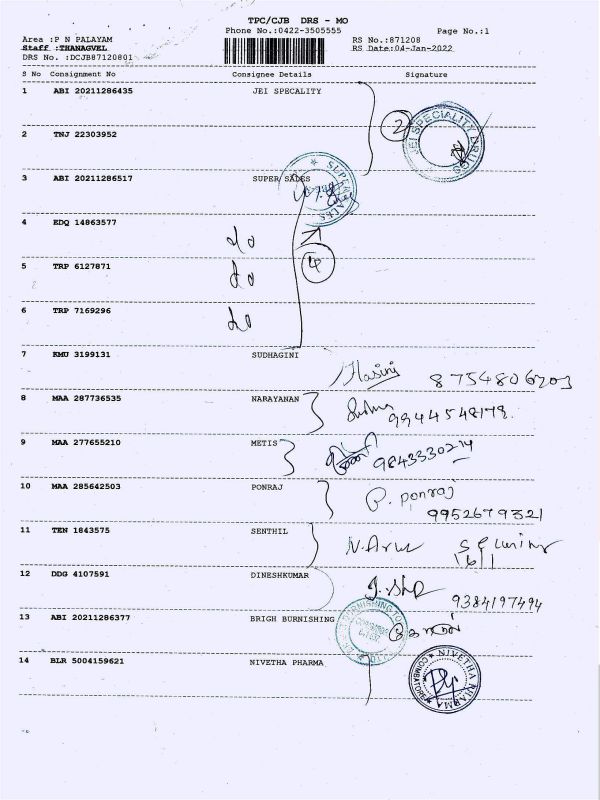 TPC/CJB DRS - MO
Phone No.:0422-3505555 Page No.:1
Area :P N PALAYAM RS No.:871208
Staff :THANAGVEL RS Date:04-Jan-2022
DRS No. :DCJB87120801
S No Consignment No Consignee Details Signature
1 ABI 20211286435 JEI SPECALITY
2
JEI SPECIALITY DRUGS
2 TNJ 22303952
3 ABI 20211286517 SUPER SALES
SUPER SALES
4 EDQ 14863577
do
4
5 TRP 6127871
do
6 TRP 7169296
do
7 KMU 3199131 SUDHAGINI
Hasini 8754806203
8 MAA 287736535 NARAYANAN
9944548178
9 MAA 277655210 METIS
9843330214
10 MAA 285642503 PONRAJ
P. ponraj
9952679321
11 TEN 1843575 SENTHIL
12 DDG 4107591 DINESHKUMAR
9384197494
13 ABI 20211286377 BRIGH BURNISHING
14 BLR 5004159621 NIVETHA PHARMA
NIVETHA PHARMA
COIMBATORE